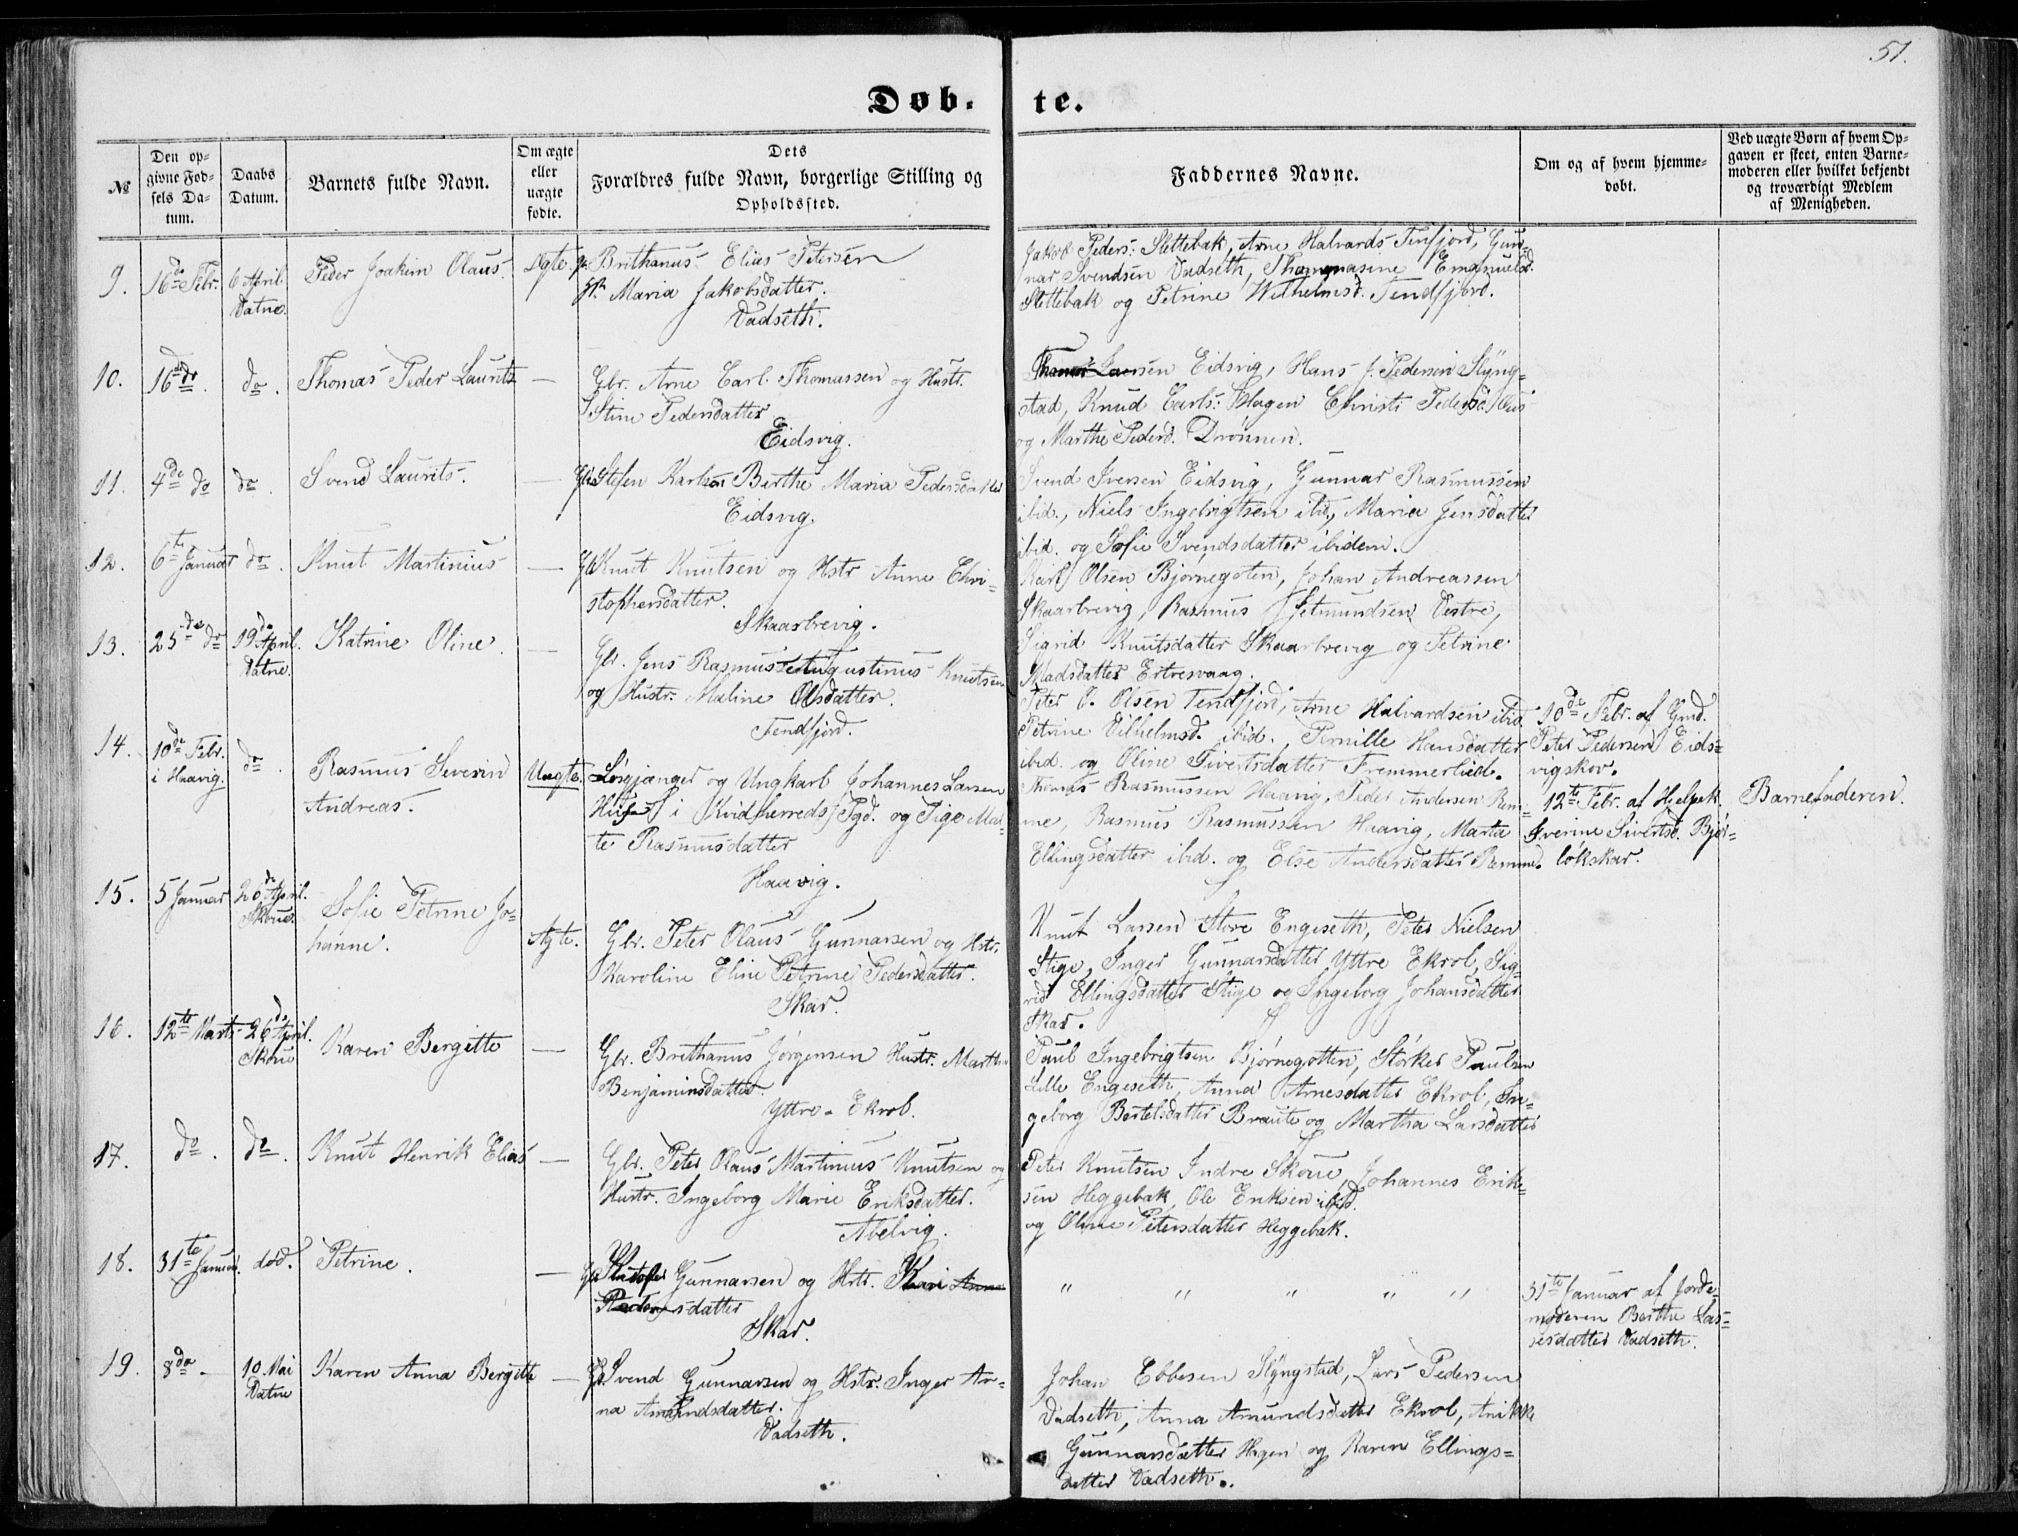 51.
Døb-te.
№
Den op-
givne Fød-
sels Da-
tum.
Daabs
Datum.
Barnets fulde Navn.
Om ægte
eller
uægte
fødte.
Dets
Forældres fulde Navn, borgerlige Stilling og
Opholdssted.
Faddernes Navne.
Om og af hvem hjemme-
døbt.
Ved uægte Børn af hvem Op-
gaven er skeet, enten Barne-
moderen eller hvilket bekjendt
og troværdigt Medlem
af Menigheden.
9.
16de Febr.
6 April
Vatne.
Peder Joakim Olaus.
Ægte
Brithanus Elias Petersen
Maria Jakobsdatter.
Vadseth.
Jakob Peders: Slettebak, Arne Halvards Tenfjord, Gun-
nar Svendsen Vadseth, Thommasine Emanuelsd.
Slettebak og Petrine Wilhelmsd. Tendfjord.
10.
16de do.
do.
Thomas Peder Laurits
—
Gbr. Arne Carl Thomassen og Hustr.
Stine Pedersdatter
Eidsvig.
Eidsvig, Hans J. Pedersen Slyng-
stad, Knud Carls: Hagen Christi
og Marthe Pedersd. Drønnen.
11.
4de do
do.
Svend Laurits.
—
Stefen Karlsen Birthe Maria Pedersdatter
Eidsvig.
Svend Iversen Eidsvig, Gunnar Rasmussen
ibid., Niels Ingebrigtsen ibid., Maria Jensdatter
ibid. og Sofie Svendsdatter ibidem.
12.
6te Januar
do.
Knut Martinius
—
Knut Knutsen og Hstr Anne Chri-
stophersdatter.
Skaarbrevig.
Olsen Bjørnegoten, Johan Andreassen
Skaarbrevig, Rasmus Vestre,
Sigrid Knutsdatter Skaarbrevig og Petrine
Madsdatter Ertresvaag.
13.
25de do
19de April.
Vatne.
Katrine Oline.
—
Gbr. Jens Rasmus Augustinus Knutsen
og Hustr. Maline Olsdatter.
Tendfjord.
Peter O. Olsen Tendfjord, Arne Halvardsen ibid
Petrine Vilhelmsd. ibid., Pernille Hansdatter
ibid. og Oline Sivertsdatter Fremmerlied.
10de Febr. af Gmd.
Peter Pedersen Eids-
vigskov.
14.
10de Febr.
i Haavig.
do.
Rasmus Severin
Andreas.
Uægte.
Løsgjænger og Ungkarl Johannes Larsen
i Kvidherreds Pgd. og Pige Mar-
te Rasmusdatter
Haavig.
Thomas Rasmussen Haavig, Peder Andersen Rem-
me, Rasmus Rasmussen Haavig, Marta
Ellingsdatter ibid. og Else Andersdatter Remme.
12te Febr. af Hjelpek.
Iverine Sivertsd. Bjør-
løkskar.
Barnefaderen.
15.
5 Januar
20de April.
Skoue.
Sofie Petrine Jo-
hanne.
Ægte.
Gbr. Peter Olaus Gunnarsen og Hstr.
Karoline Eline Petrine Pedersdatter.
Skar.
Knut Larsen Store Engeseth, Peter Nielsen
Stige, Inger Gunnarsdatter Yttre Ekrol, Sig-
rid Ellingsdatter Stige og Ingeborg Johansdatter
Skar.
16.
12te Marts
26de April.
Skoue
Karen Bergitte
—
Gbr. Brithanus Jørgensen Hustr. Marthe
Benjaminsdatter.
Yttre-Ekrol.
Paul Ingebrigtsen Bjørnegotten, Størker Paulsen
Lille Engeseth, Anna Arnesdatter Ekrol, In-
geborg Bertelsdatter Braute og Martha Larsdatter
17.
do.
do.
Knut Henrik Elias
—
Gbr. Peter Olaus Martinius Knutsen og
Hustr. Ingeborg Marie Eriksdatter.
Abelvig.
Peter Knutsen Indre Skoue, Johannes Erik-
sen Heggebak, Ole Eriksen ibid.
og Oline Petersdatter Heggebak.
18.
31te Januar.
død.
Petrine.
—
Gunnarsen og Hstr.
Skar.
" " " " "
31te Januar af Jorde-
moderen Berthe Las-
sesdatter Vadseth.
19.
8de -
10 Mai
Vatne
Karen Anna Bergitte
—
Svend Gunnarsen og Hstr. Inger An-
na Amundsdatter.
Vadseth.
Johan Ebbesen Slyngstad, Lars Pedersen
Vadseth, Anna Amundsdatter Ekrol, Anikke
Gunnarsdatter Hagen og Karen Ellings-
datter Vadseth.